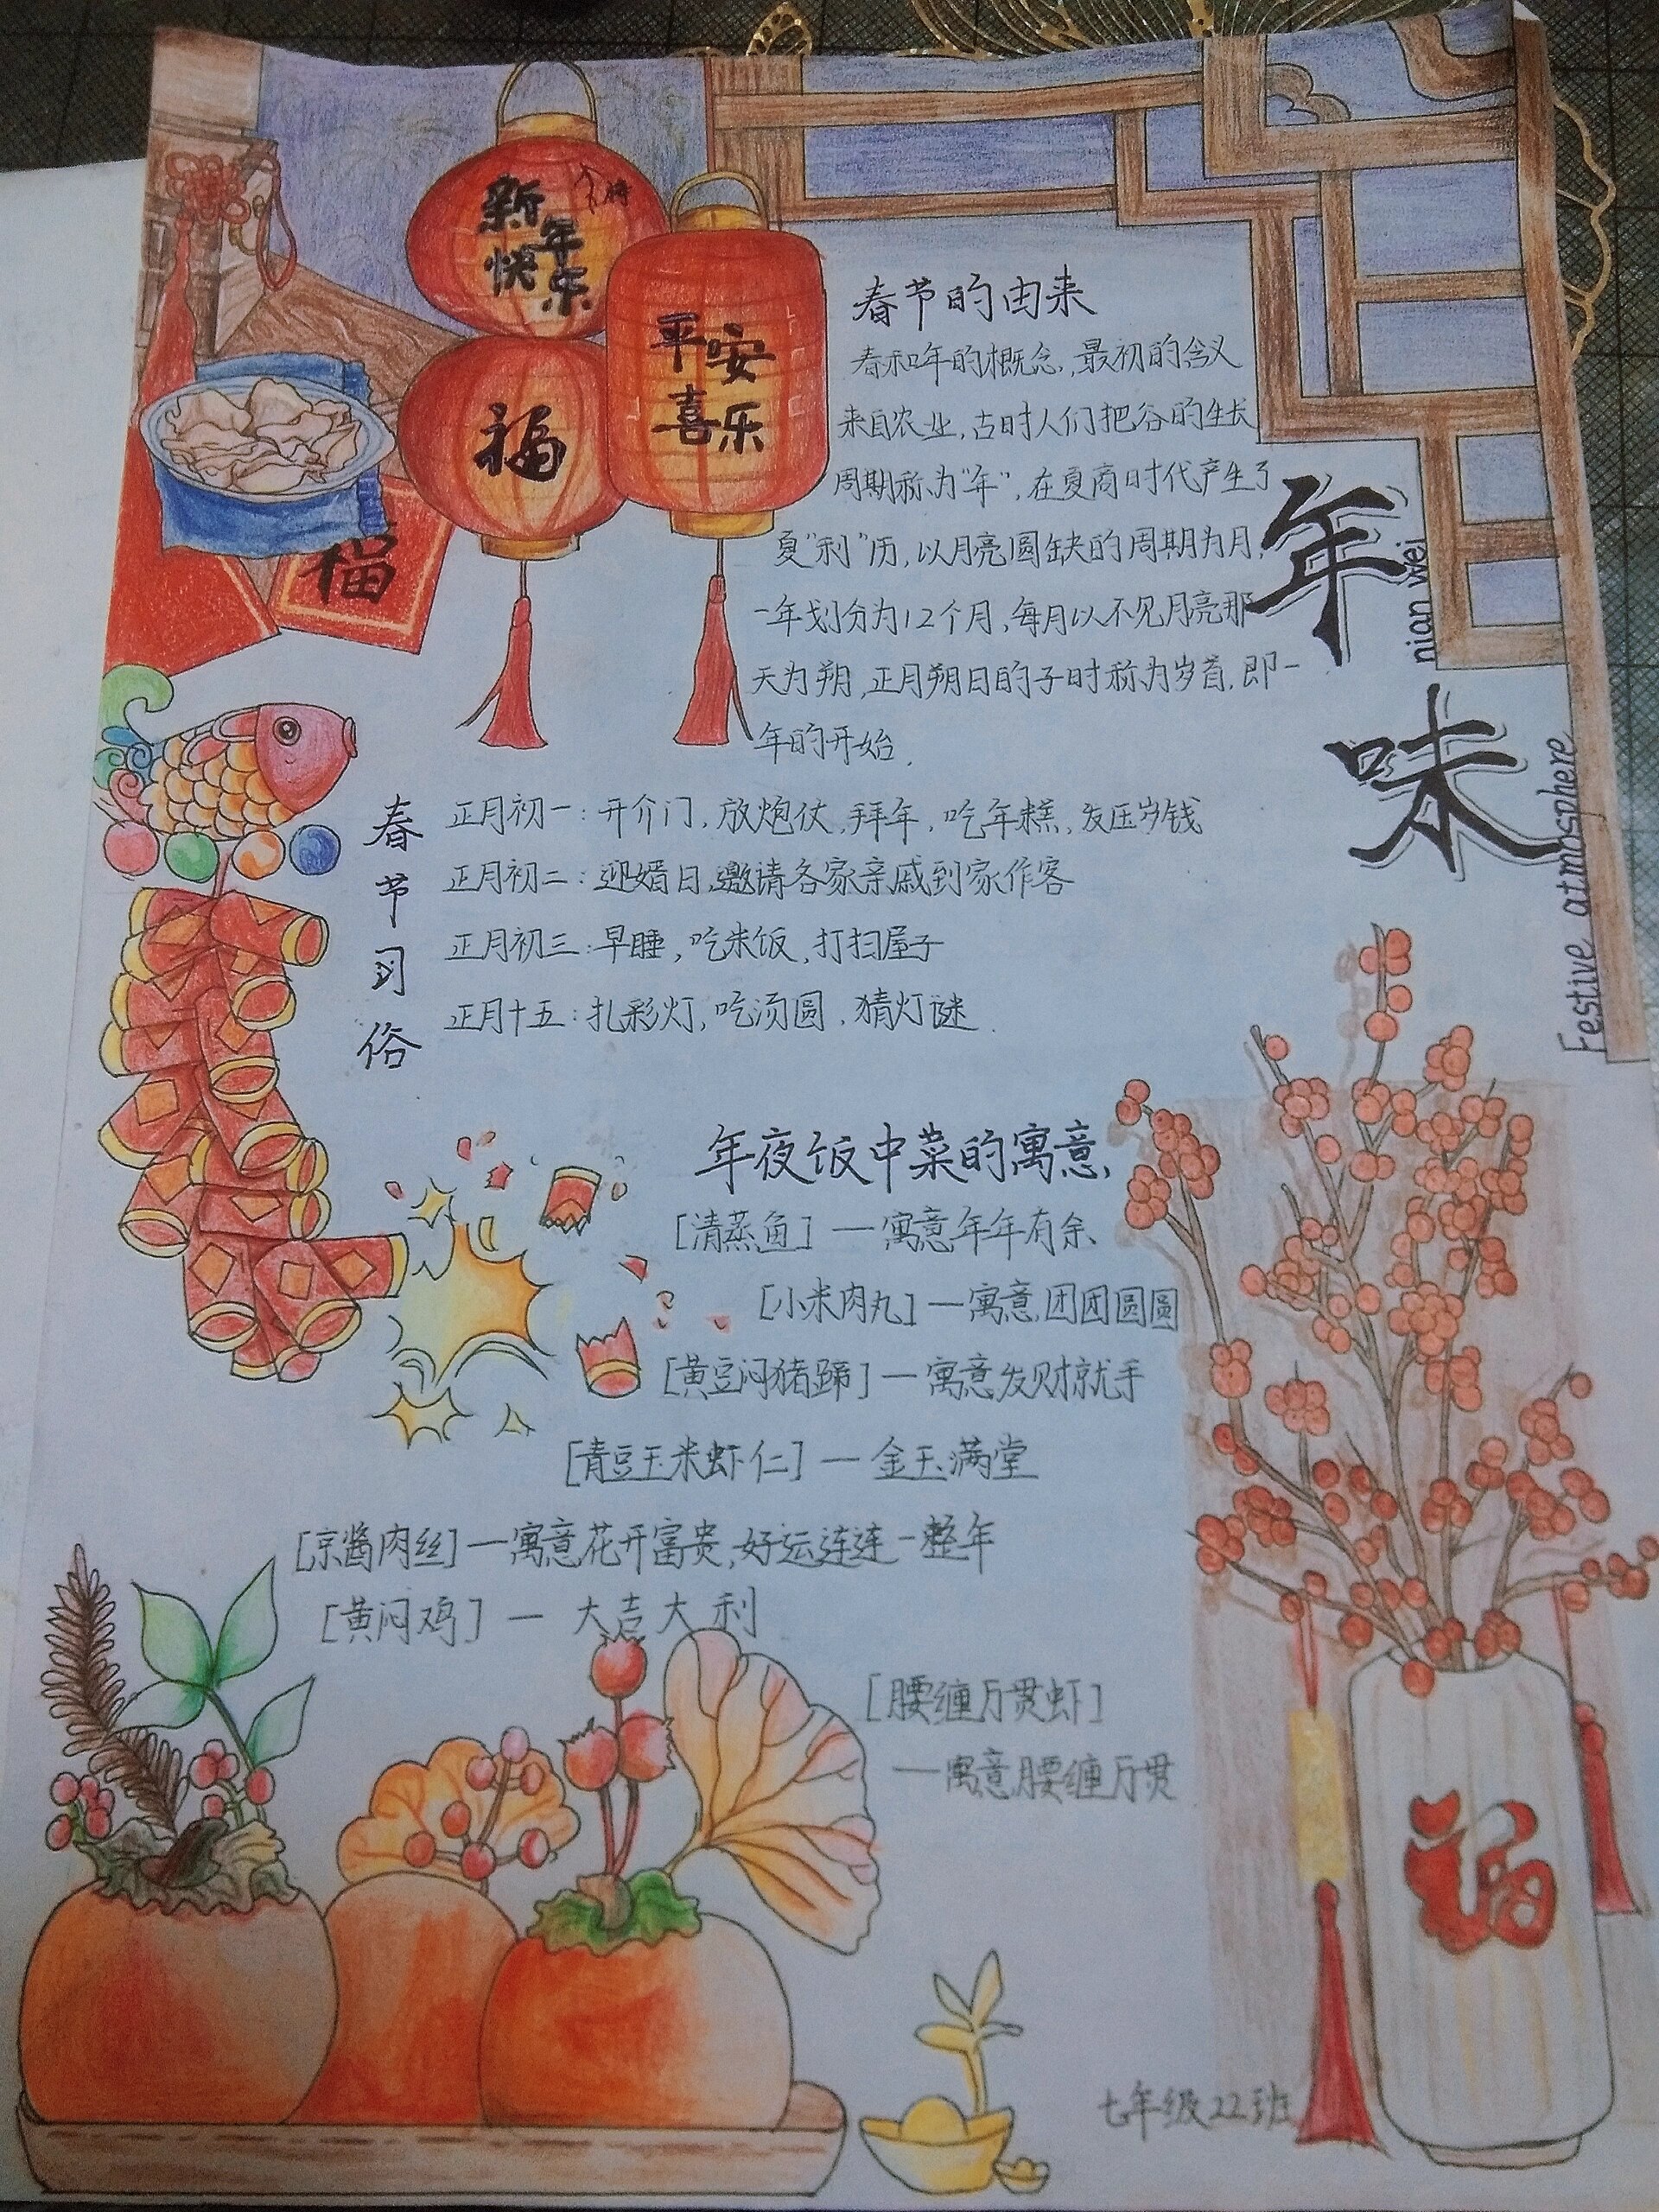 新年
快乐
平安
喜乐
福
福
春节的由来
春和年的概念,最初的含义
来自农业,古时人们把谷的生长
周期称为"年",在夏商时代产生了
夏"利"历,以月亮圆缺的周期为月,
一年划分为12个月,每月以不见月亮那
天为朔,正月朔日的子时称为岁首,即一
年的开始.
年味
nian wei
Festive atmosphere
春节习俗
正月初一:开介门,放炮仗,拜年,吃年糕,发压岁钱
正月初二:迎婿日,邀请各家亲戚到家作客
正月初三:早睡,吃米饭,打扫屋子
正月十五:扎彩灯,吃汤圆,猜灯谜.
年夜饭中菜的寓意,
[清蒸鱼]—寓意年年有余
[小米肉丸]—寓意团团圆圆
[黄豆闷猪蹄]—寓意发财就手
[青豆玉米虾仁]—金玉满堂
[京酱肉丝]—寓意花开富贵,好运连连一整年
[黄闷鸡]—大吉大利
[腰缠万贯虾]
—寓意腰缠万贯
福
七年级22班